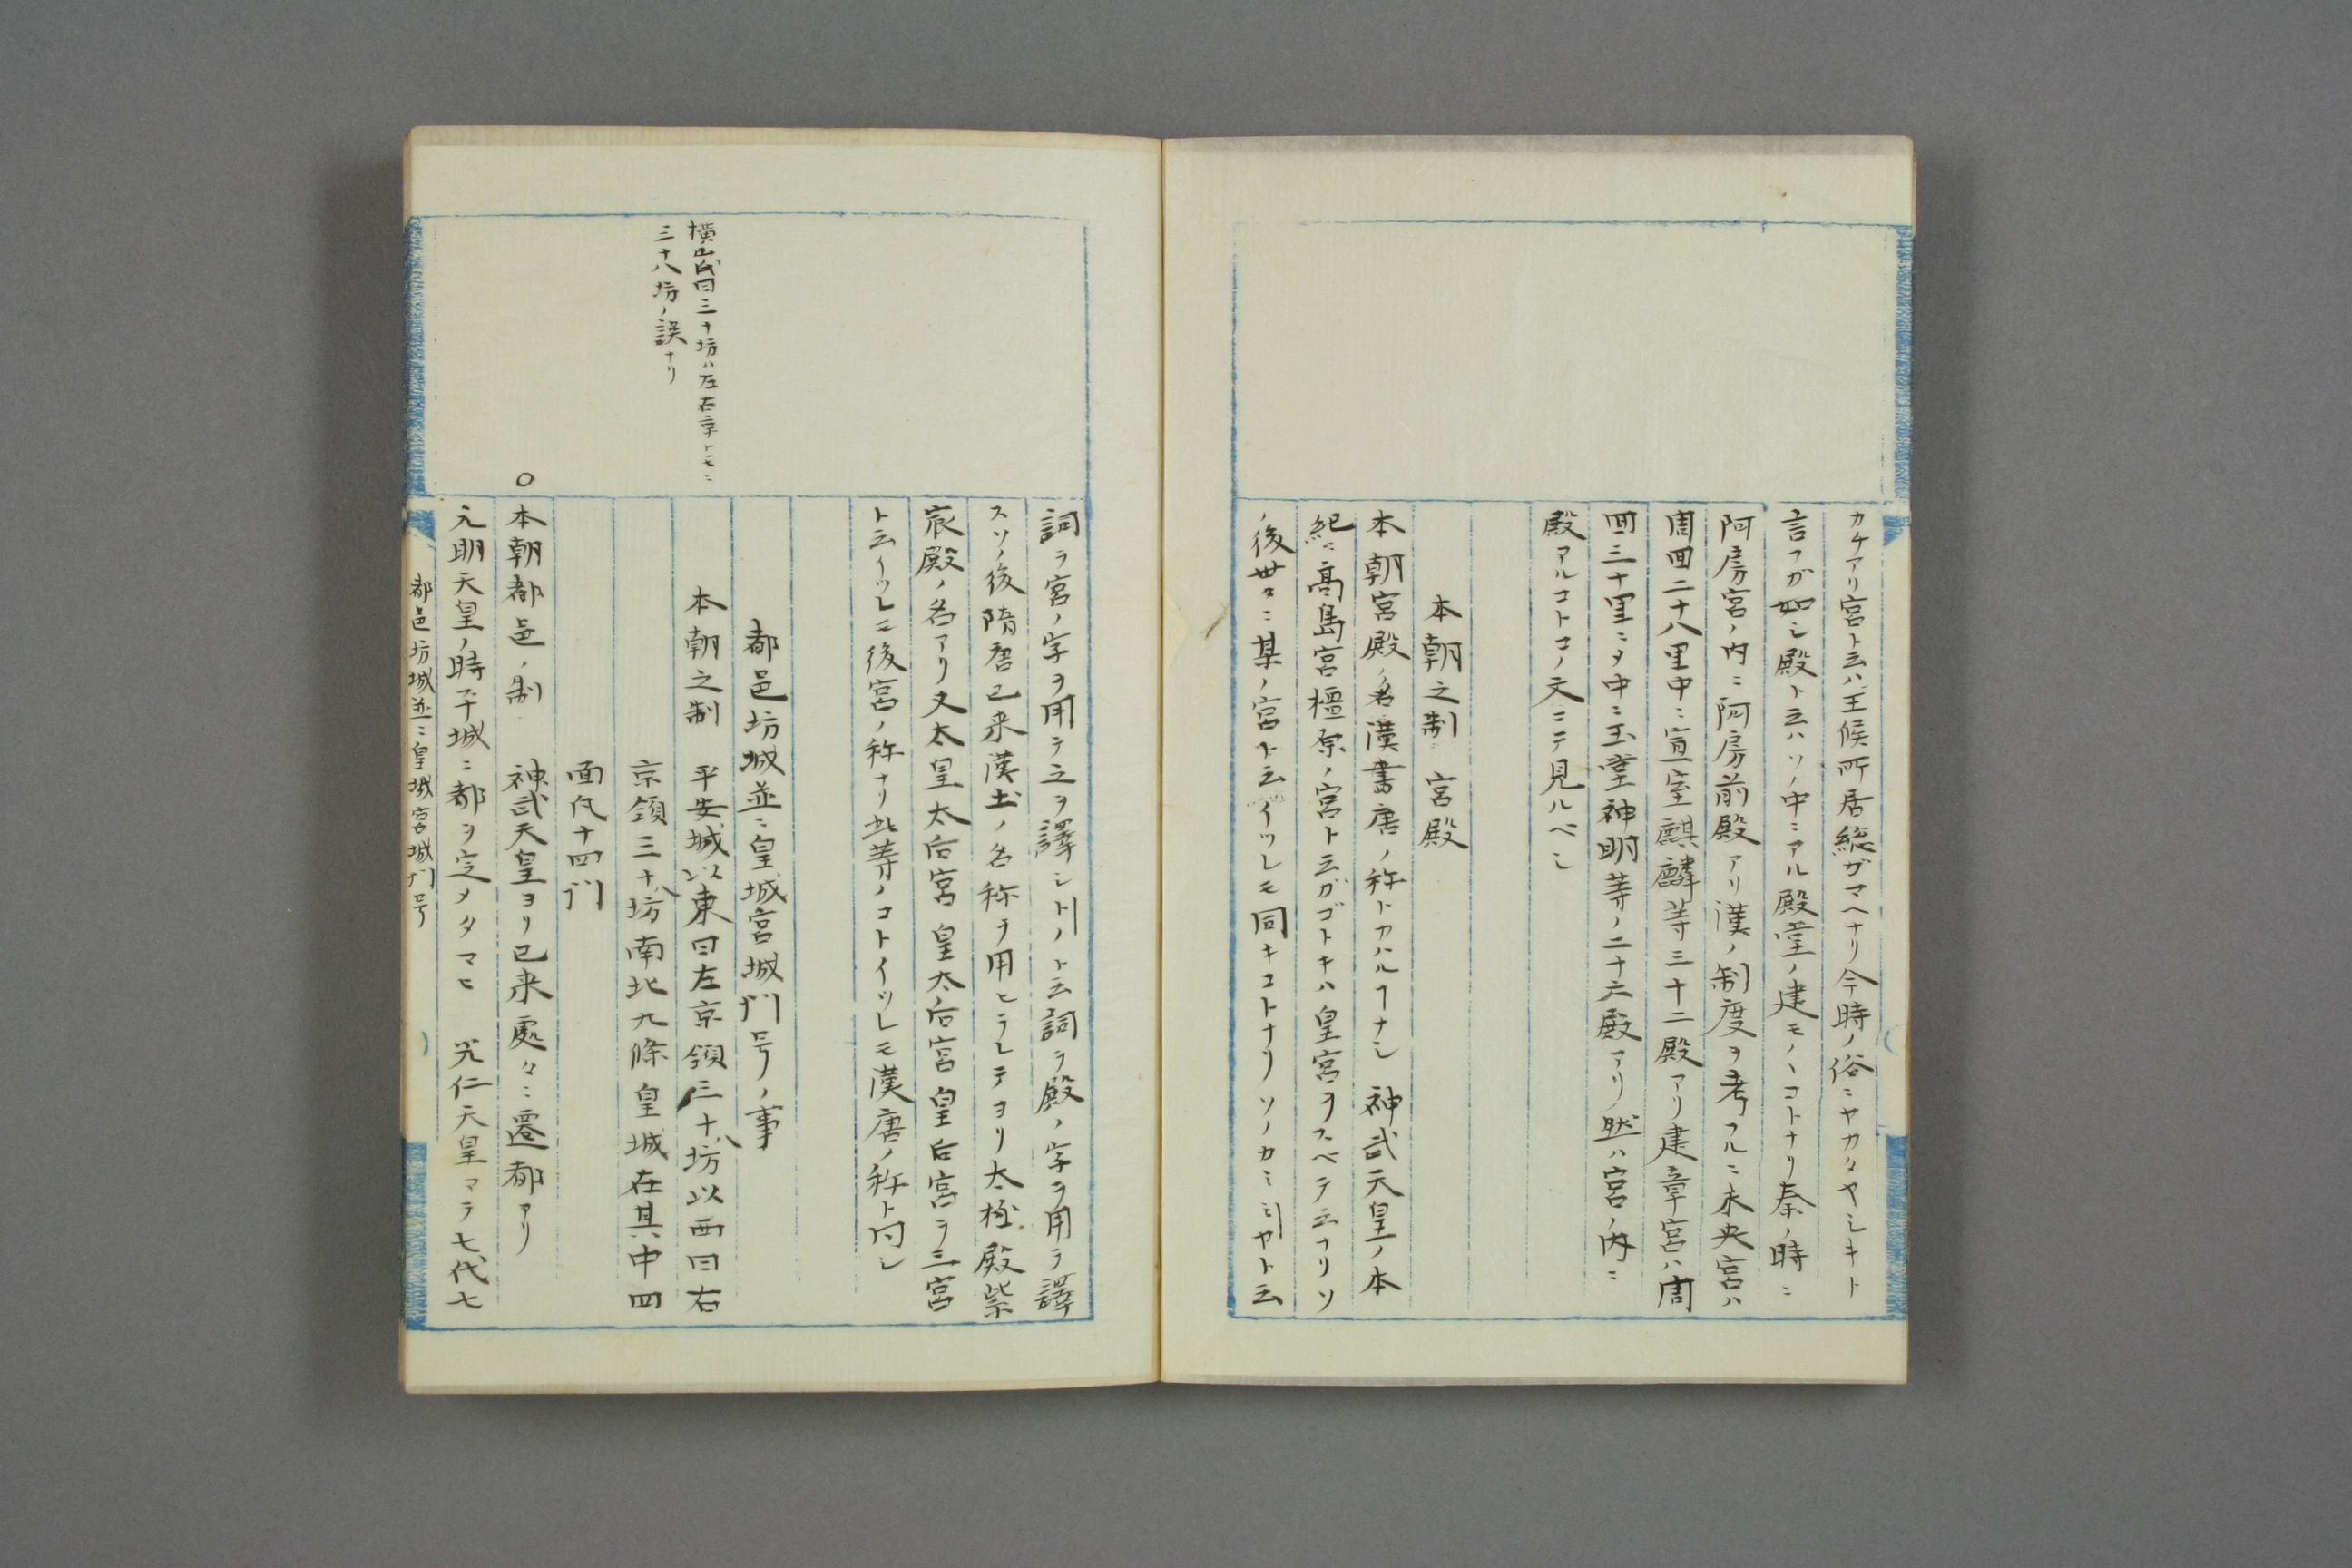 カチアリ宮ト云ハ王候所居総ザマヘナリ今時ノ俗ニヤカタヤシキト
言フガ如シ殿ト云ハソノ中ニアル殿堂ノ建モノヽコトナリ秦ノ時ニ
阿房宮ノ内ニ阿房前殿アリ漢ノ制度ヲ考フルニ未央宮ハ
周囬二十八里中ニ宣室麒麟等三十二殿アリ建章宮ハ周
囬三十里ニ〆中ニ玉堂神明等ノ二十六殿アリ然ハ宮ノ内ニ
殿アルコトコノ文ニテ見ルベシ
本朝之制 宮殿
本朝宮殿ノ名漢書唐ノ称トカハルヿナシ 神武天皇ノ本
紀ニ高島宮橿原ノ宮ト云ガゴトキハ皇宮ヲスベテ云フリソ
ノ後世々ニ某ノ宮ト云イツレモ同キコトナリソノカミミヤト云
詞ヲ宮ノ字ヲ用テ之ヲ譯シトノト云詞ヲ殿ノ字ヲ用ヲ譯
スソノ後隋唐已来漢土ノ名称ヲ用ヒラレテヨリ太極殿紫
宸殿ノ名アリ又太皇太后宮皇太后宮皇后宮ヲ三宮
ト云イツレモ後宮ノ称ナリ此等ノコトイツレモ漢唐ノ称ト同シ
都邑坊城並ニ皇城宮城門号ノ事
本朝之制 平安城以東曰左京領三十八坊以西曰右
京領三十八坊南北九條皇城在其中四
面凡十四門
横山氏曰三十坊ハ左右京トモニ
三十八坊ノ誤ナリ
○本朝都邑ノ制 神武天皇ヨリ已来處々ニ遷都アリ
元明天皇ノ時平城ニ都ヲ定メタマヒ 光仁天皇マテ七代七
都邑坊城並ニ皇城宮城門号